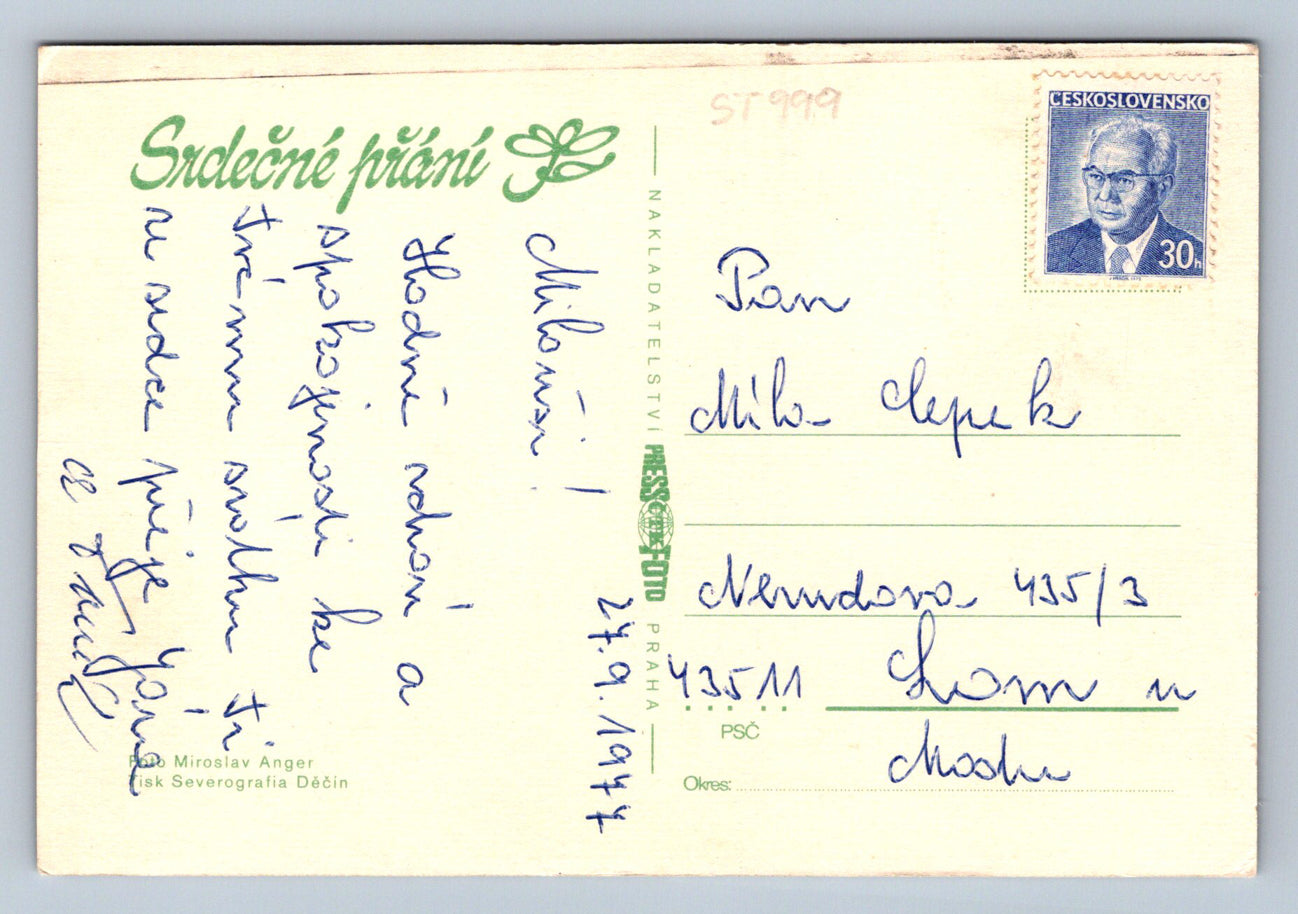 Srdečné přání
27.9.1977
Milouši!
Hodně zdraví a
spokojenosti ke
Tvému svátku Ti
ze srdce přeje Jára
a
Foto Miroslav Anger
Tisk Severografia Děčín
NAKLADATELSTVÍ PRESSFOTO PRAHA
ČTK
ST999
ČESKOSLOVENSKO
30h
Pan
Míla Čepek
Nerudova 435/3
43511 Lom u
Mostu
PSČ
Okres: